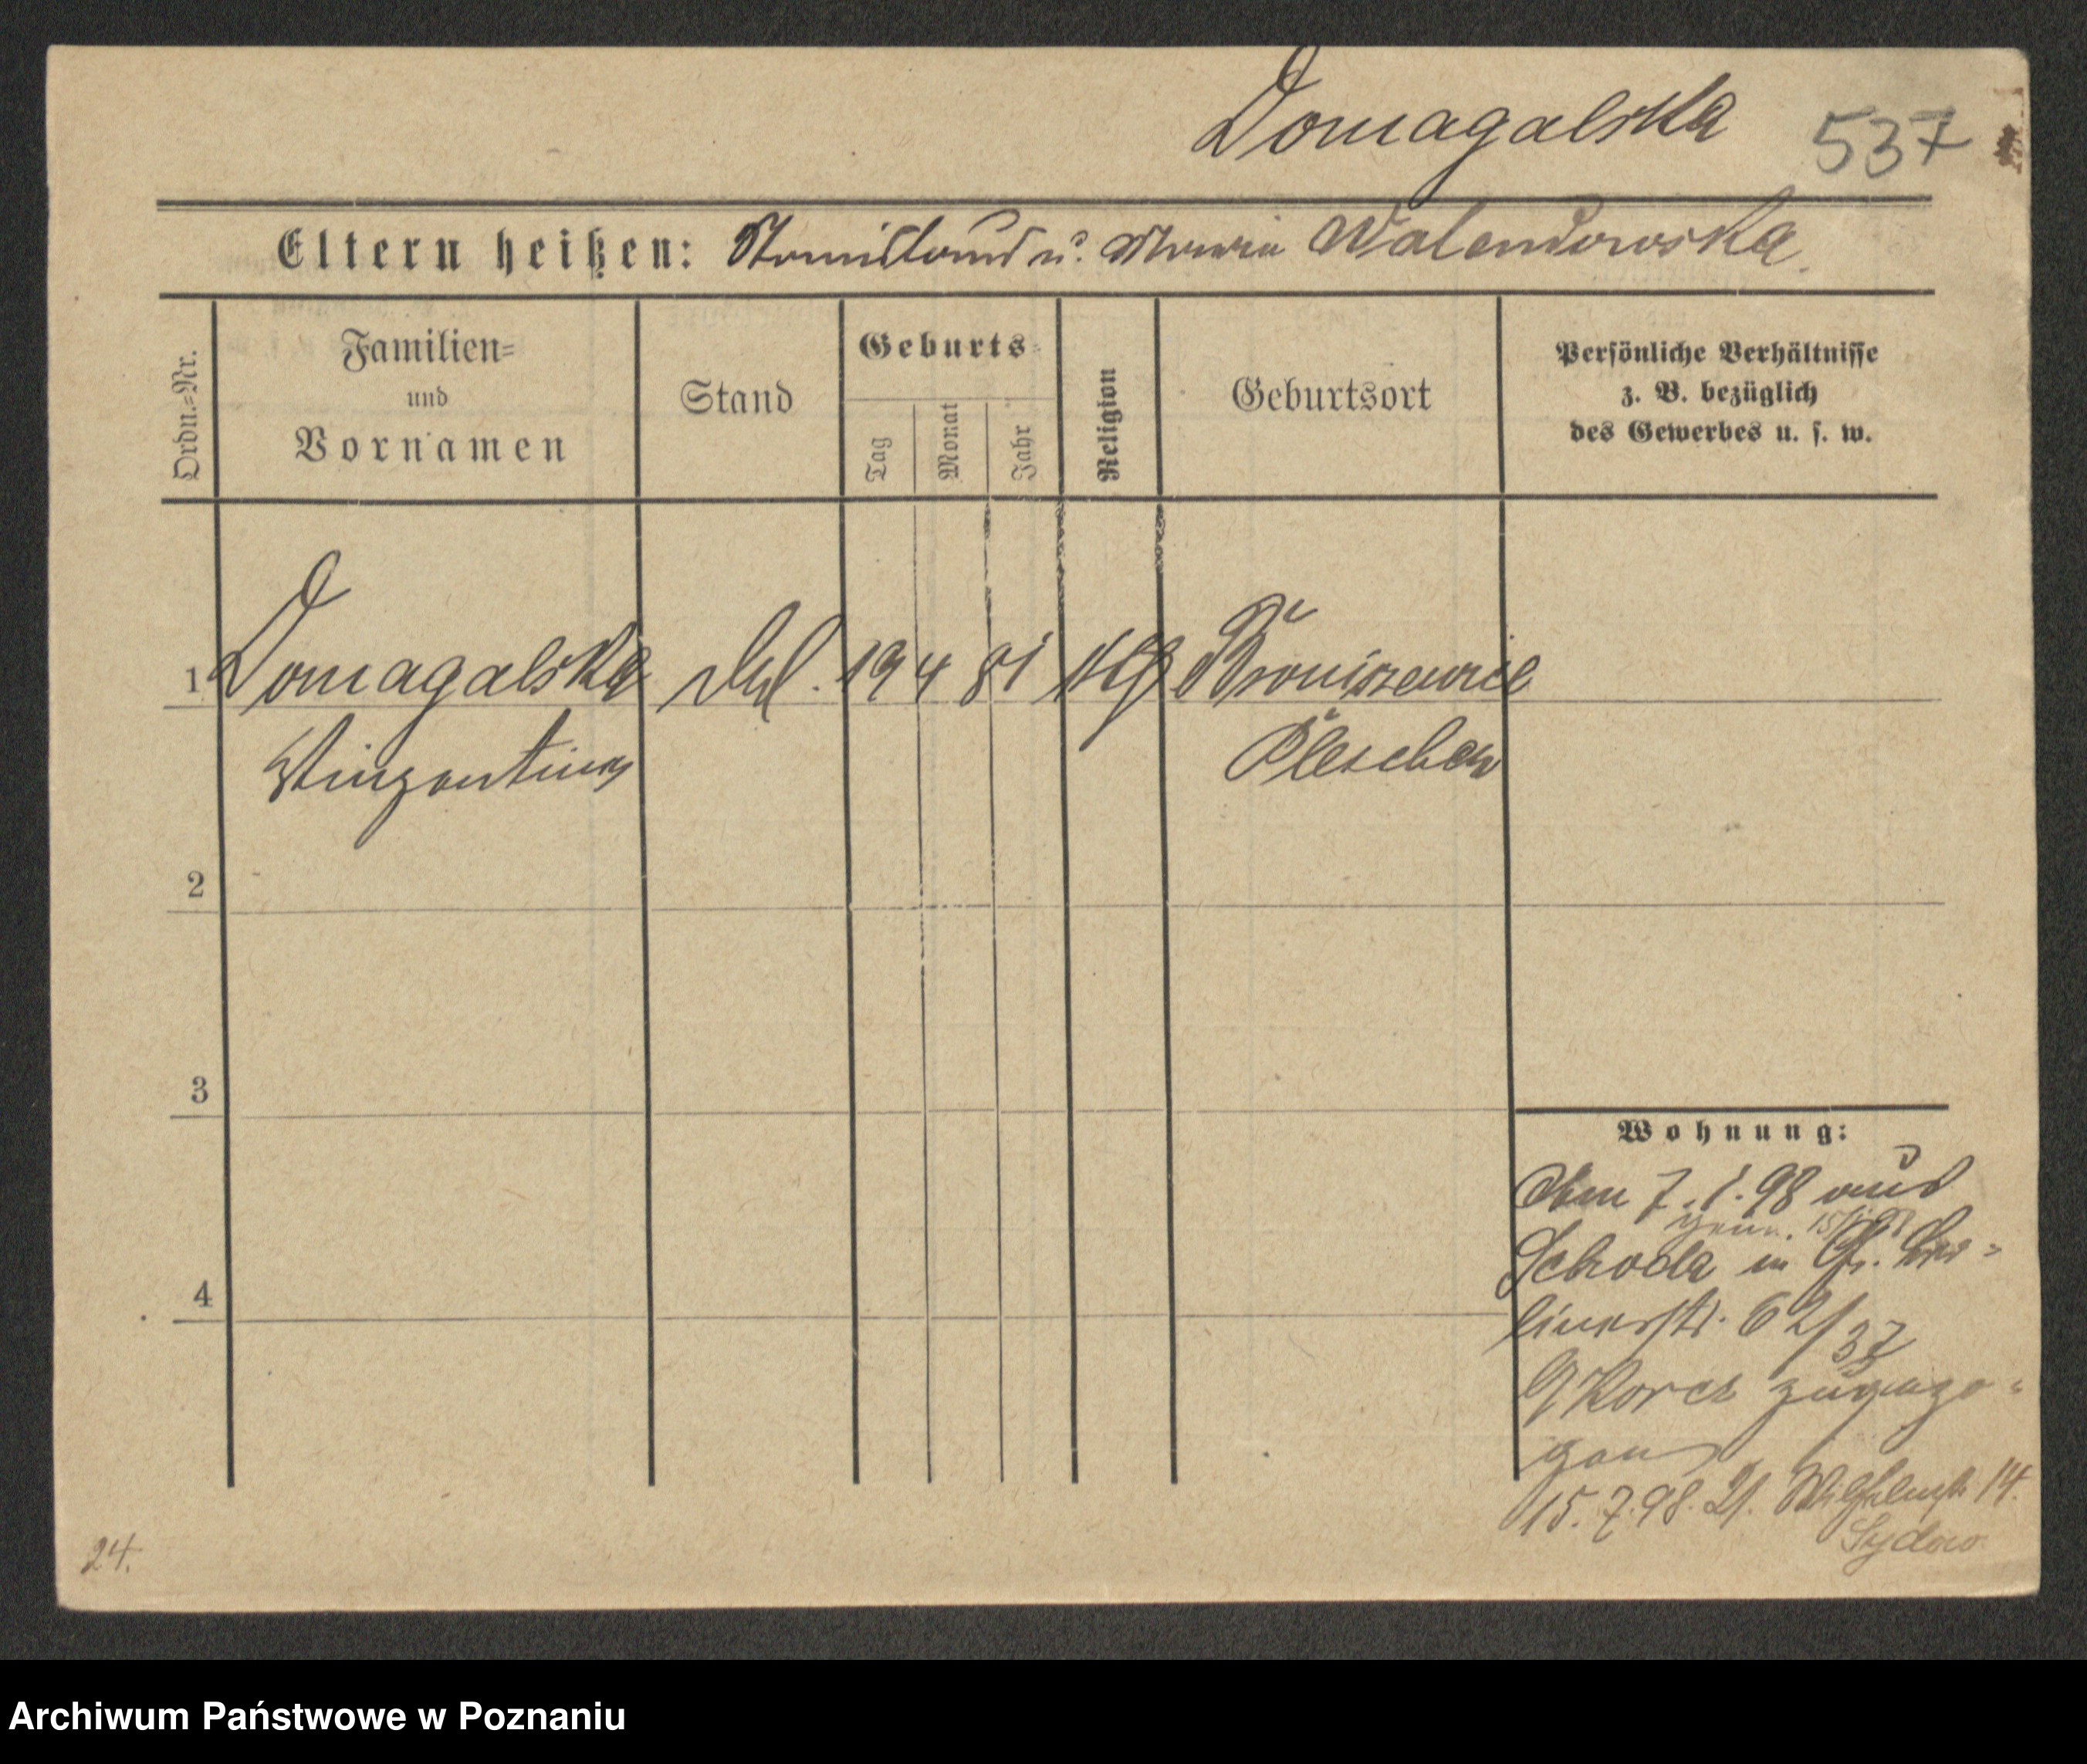 Domagalska 537
Eltern heißen: Stanislaus u. Maria Walendowska.
Ordn.=Nr.
Familien=
und
Vornamen
Stand
Geburts=
Tag
Monat
Jahr
Religion
Geburtsort
Persönliche Verhältnisse
z. B. bezüglich
des Gewerbes u. s. w.
1 Domagalska 19 4 81 Broniszewice
Pleschen
2
3
4
Wohnung:
Am 7.1.98 aus
Schroda in Gr. Ber=
linerstr. 62/37
zugezo=
gen
15.7.98. 21. Wilhelmstr 14.
Sydow
24.
Archiwum Państwowe w Poznaniu